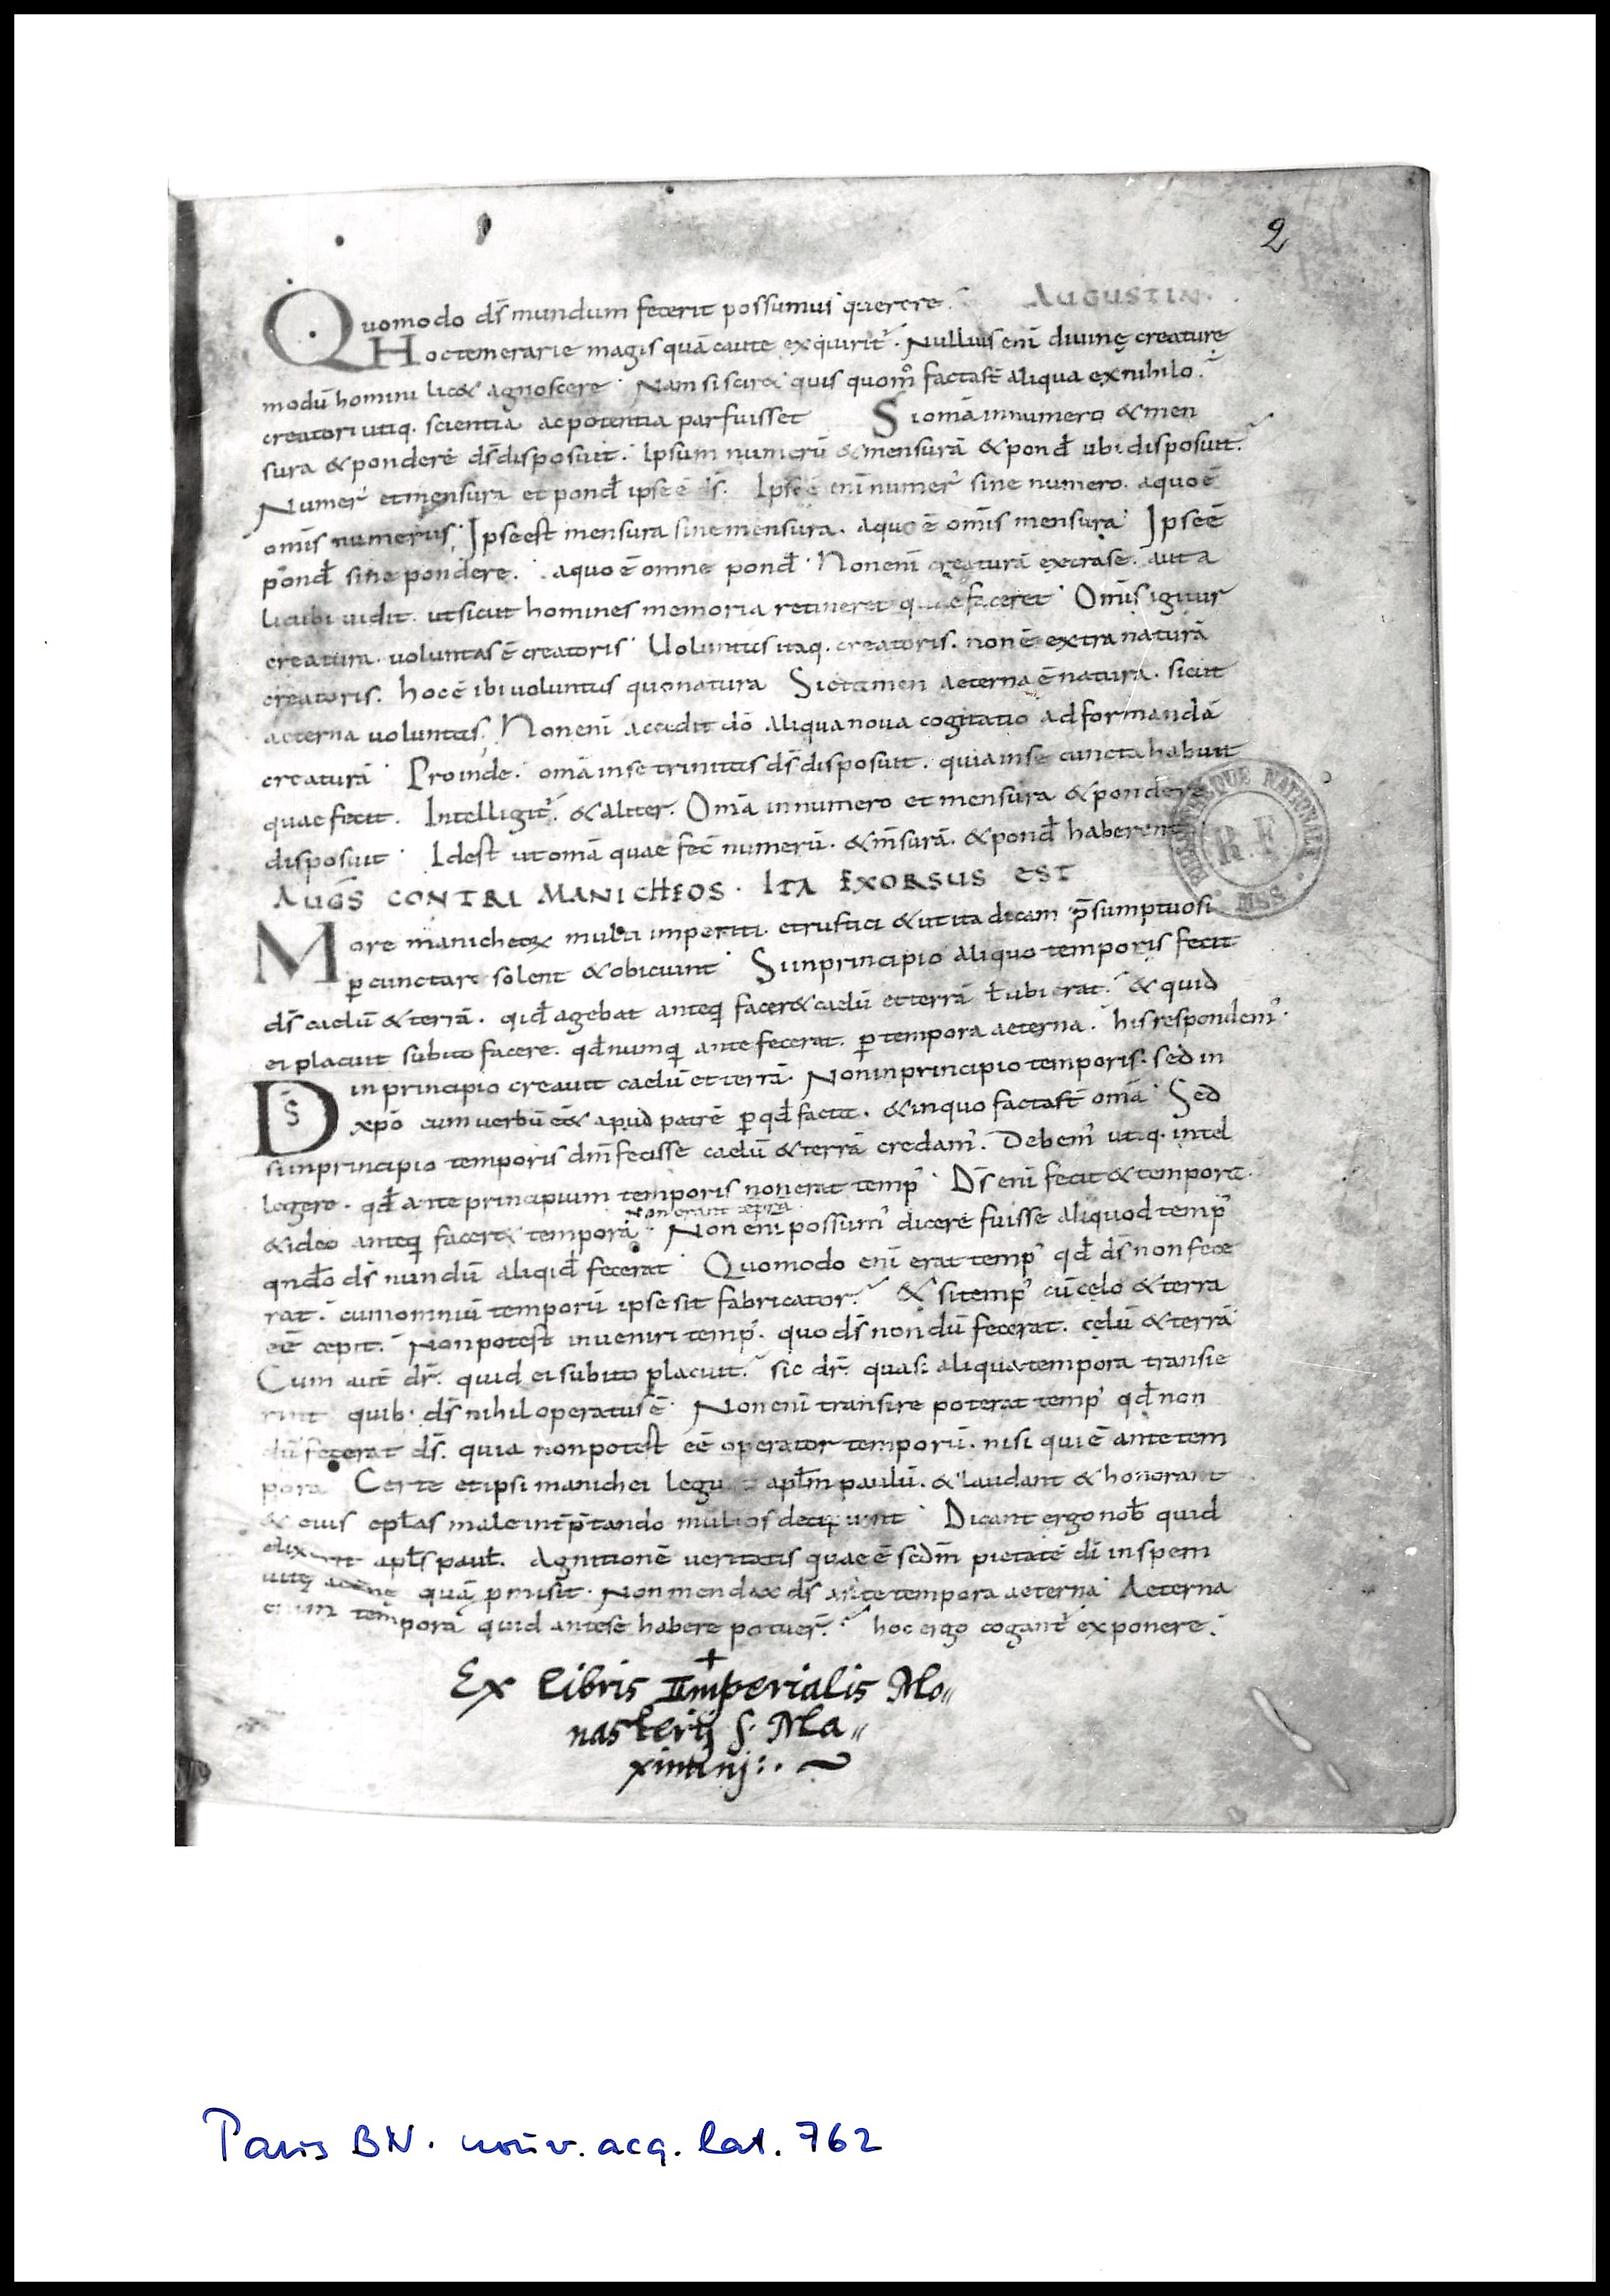 2
Quomodo dꝭ mundum fecerit possumus querere. AUGUSTIN.
Hoc temerarie magis quā caute exquirit᷒. Nullus enī divinę creature
modū homini lic& agnoscere. Nam si scir& quis quom̊ facta st̄ aliqua ex nihilo.
creatori utiq. scientia ac potentia par fuisset Si om̄a in numero & men
sura & pondere ds̄ disposuit. Ipsum numerū & mensurā & pond̄ ubi disposuit.
Numer᷒ et mensura et pond̄ ipse ē ds̄. Ipse ē enī numer᷒ sine numero. a quo ē
om̄is numerus. Ipse est mensura sine mensura. a quo ē om̄is mensura. Ipse ē
pond̄ sine pondere. a quo ē omne pond̄. Non enī creaturā extra se. aut a
licubi vidit. ut sicut homines memoria retineret quae faceret. Om̄is igitur
creatura. voluntas ē creatoris. Voluntas itaq. creatoris. non ē extra naturā
creatoris. hoc ē ibi voluntas quo natura Sic tamen aeterna ē natura. sicut
aeterna voluntas. Non enī accedit dō aliqua nova cogitatio ad formandā
creaturā. Proinde. om̄a in se trinitas ds̄ disposuit. quia in se cuncta habuit
quae fecit. Intelligit᷒ & aliter. Om̄a in numero et mensura & pondere
disposuit. Id est ut om̄a quae fec̄ numerū. & m̄surā. & pond̄ haberent
AUGS̄ CONTRA MANICHEOS. ITA EXORSUS EST
More manicheoꝝ multi imperiti. et rustici & ut ita dicam p̄sumptuosi
ꝑcunctari solent & obiciunt. Si in principio aliquo temporis fecit
ds̄ caelū & terrā. qid̄ agebat anteq̄ facer& caelū et terrā ł ubi erat. & quid
ei placuit subito facere. qd̄ numq̄ ante fecerat. ꝑ tempora aeterna. his respondem᷒.
Ds̄ in principio creavit caelū et terrā. Non in principio temporis. sed in
xp̄o cum verbū eēt apud patrē ꝑ qd̄ facta. & in quo facta st̄ om̄a. Sed
si in principio temporis dm̄ fecisse caelū & terrā credam᷒. Debem᷒ utiq. intel
legere. qd̄ ante principium temporis non erat temp᷒. Ds̄ enī fecit & tempora.
non erant tēpora
& ideo anteq̄ facer& tempora. Non enī possum᷒ dicere fuisse aliquod temp᷒
qndo ds̄ nundū aliqid̄ fecerat. Quomodo enī erat temp᷒ qd̄ ds̄ non fece
rat. cum omniū temporū ipse sit fabricator. & si temp᷒ cū cęlo & terra
eē cepit. Non potest inveniri temp᷒. quo ds̄ nondū fecerat. cęlū & terrā
Cum aut̄ dr̄. quid ei subito placuit. sic dr̄. quasi aliqua tempora transie
rint quib. ds̄ nihil operatus ē. Non enī transire poterat temp᷒ qd̄ non
dū fecerat ds̄. quia non potest eē operator temporū. nisi qui ē ante tem
pora Certe et ipsi manichei legunt apłm paulū. & laudant & honorant
& eius epłas male int̄p̄tando multos decipiunt. Dicant ergo nob̄ quid
dixerit apłs pauł. Agnitionē veritatis quae ē scdm̄ pietatē dī in spem
vitę aeternę quā ꝓmisit. Non mendax ds̄ ante tempora aeterna. Aeterna
enim tempora quid ante se habere potuer̄. hoc ergo cogant᷒ exponere.
Ex libris Imperialis Mo„
nasterij S. Ma„
ximinj:.
BIBLIOTHÈQUE NATIONALE R.F. MSS
Paris BN. nouv. acq. lat. 762